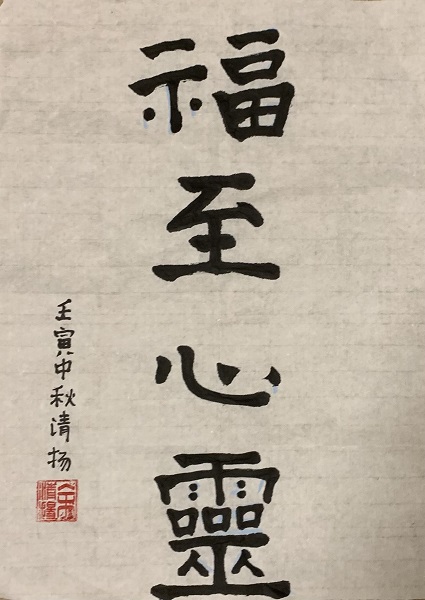 福至心靈
壬寅中秋清扬